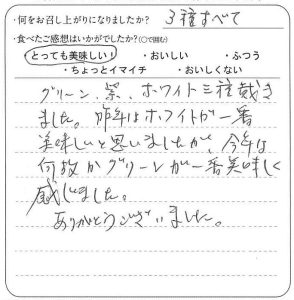 ・何をお召し上がりになりましたか? 3種すべて
・食べたご感想はいかがでしたか?(○で囲む)
・とっても美味しい! ・おいしい ・ふつう
・ちょっとイマイチ ・おいしくない
グリーン、紫、ホワイト三種戴き
ました。昨年はホワイトが一番
美味しいと思いましたが、今年は
何故かグリーンが一番美味しく
感じました。
ありがとうございました。